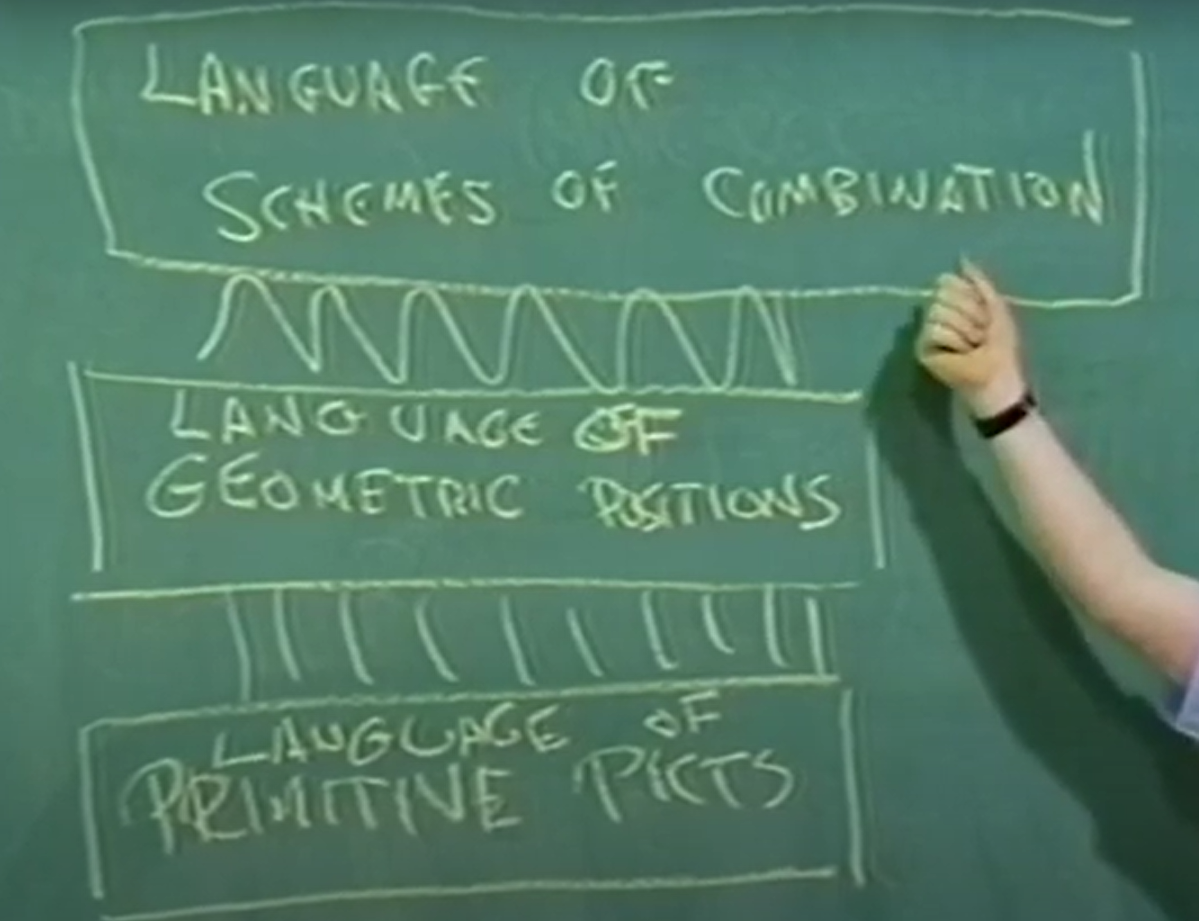 LANGUAGE OF
SCHEMES OF COMBINATION
LANGUAGE OF
GEOMETRIC POSITIONS
LANGUAGE OF
PRIMITIVE PICTS